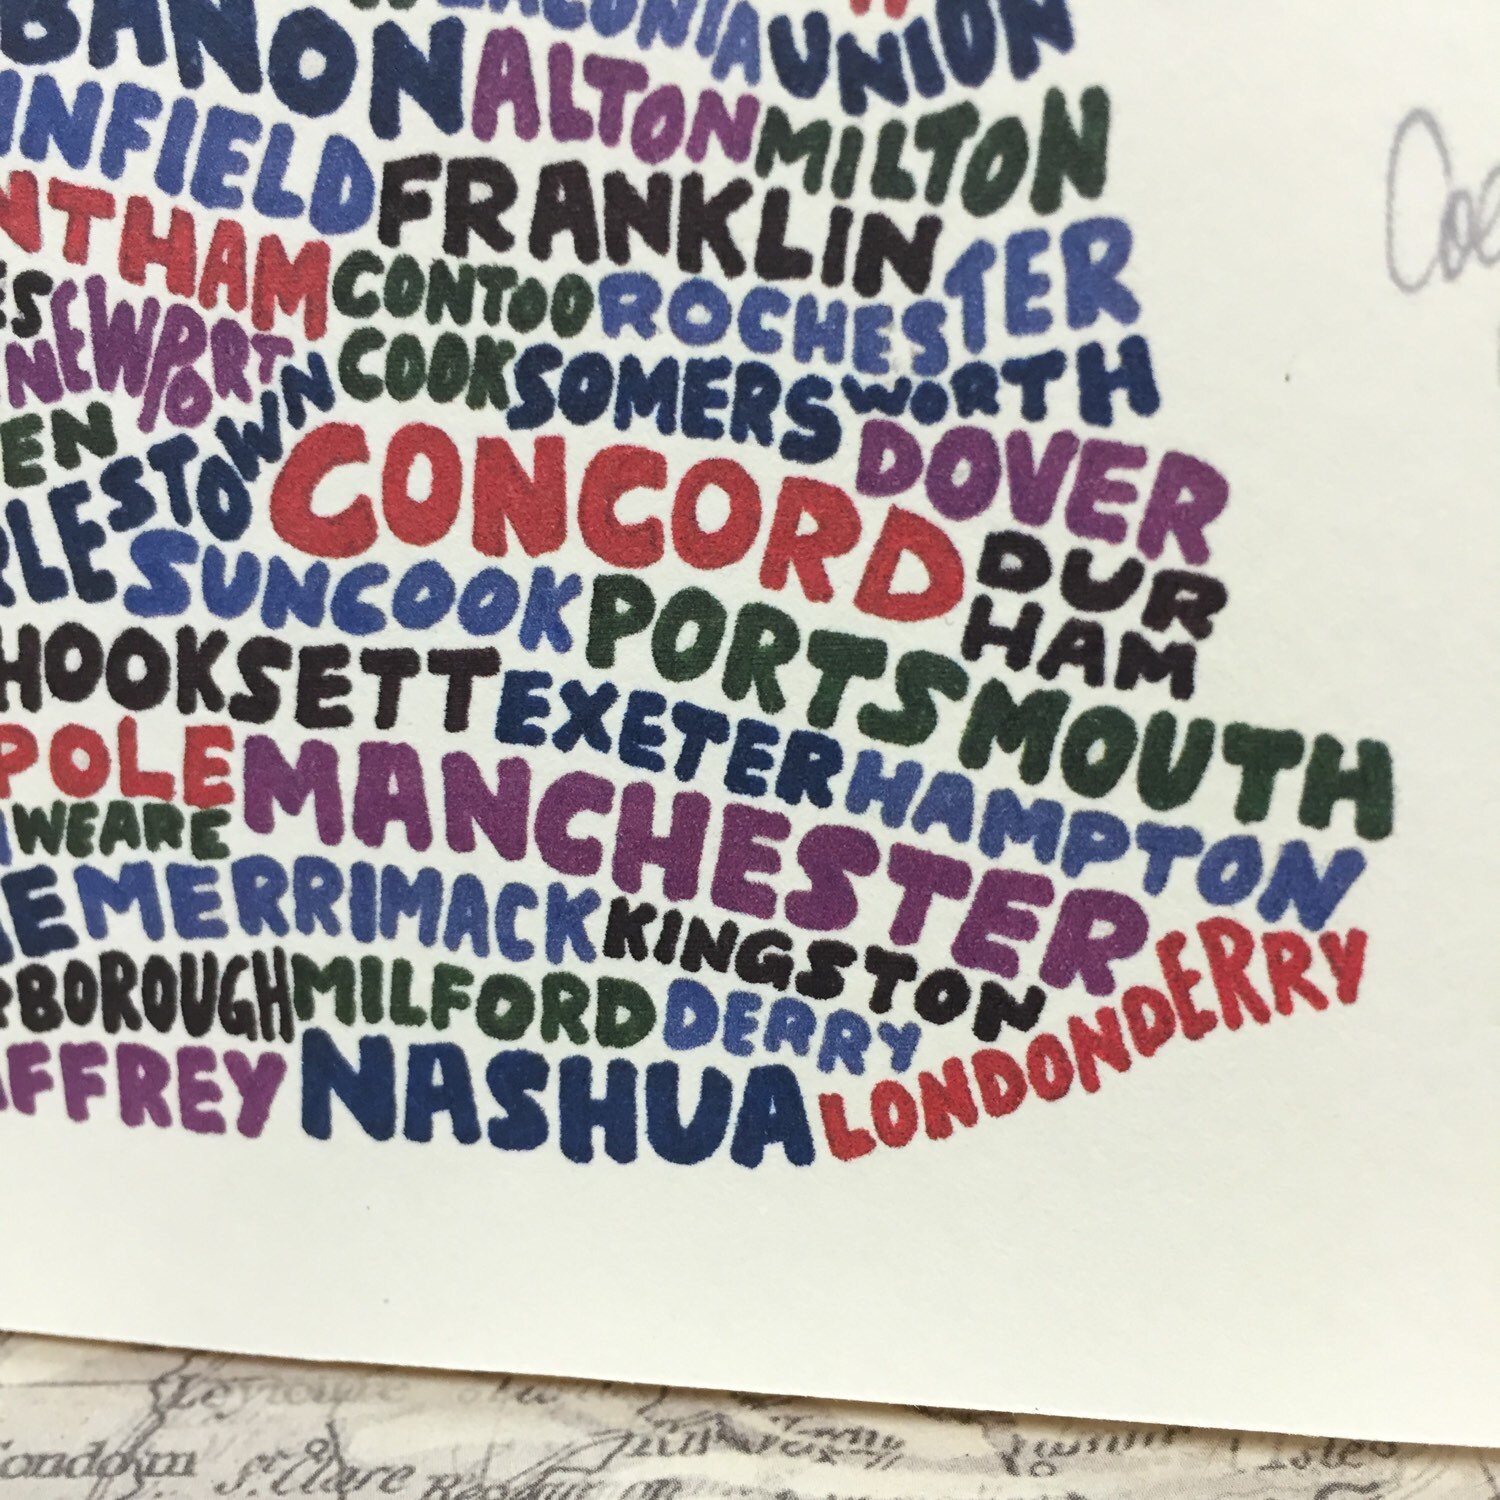 LACONIA UNION
BANON ALTON MILTON
INFIELD FRANKLIN
NTHAM CONTOO ROCHESTER
ES NEWPORT COOK SOMERSWORTH
EN
RLESTOWN CONCORD DOVER
SUNCOOK PORTSMOUTH DUR
HAM
HOOKSETT EXETER HAMPTON
POLE MANCHESTER
WEARE
E MERRIMACK KINGSTON
BOROUGH MILFORD DERRY LONDONDERRY
AFFREY NASHUA
St. Clare